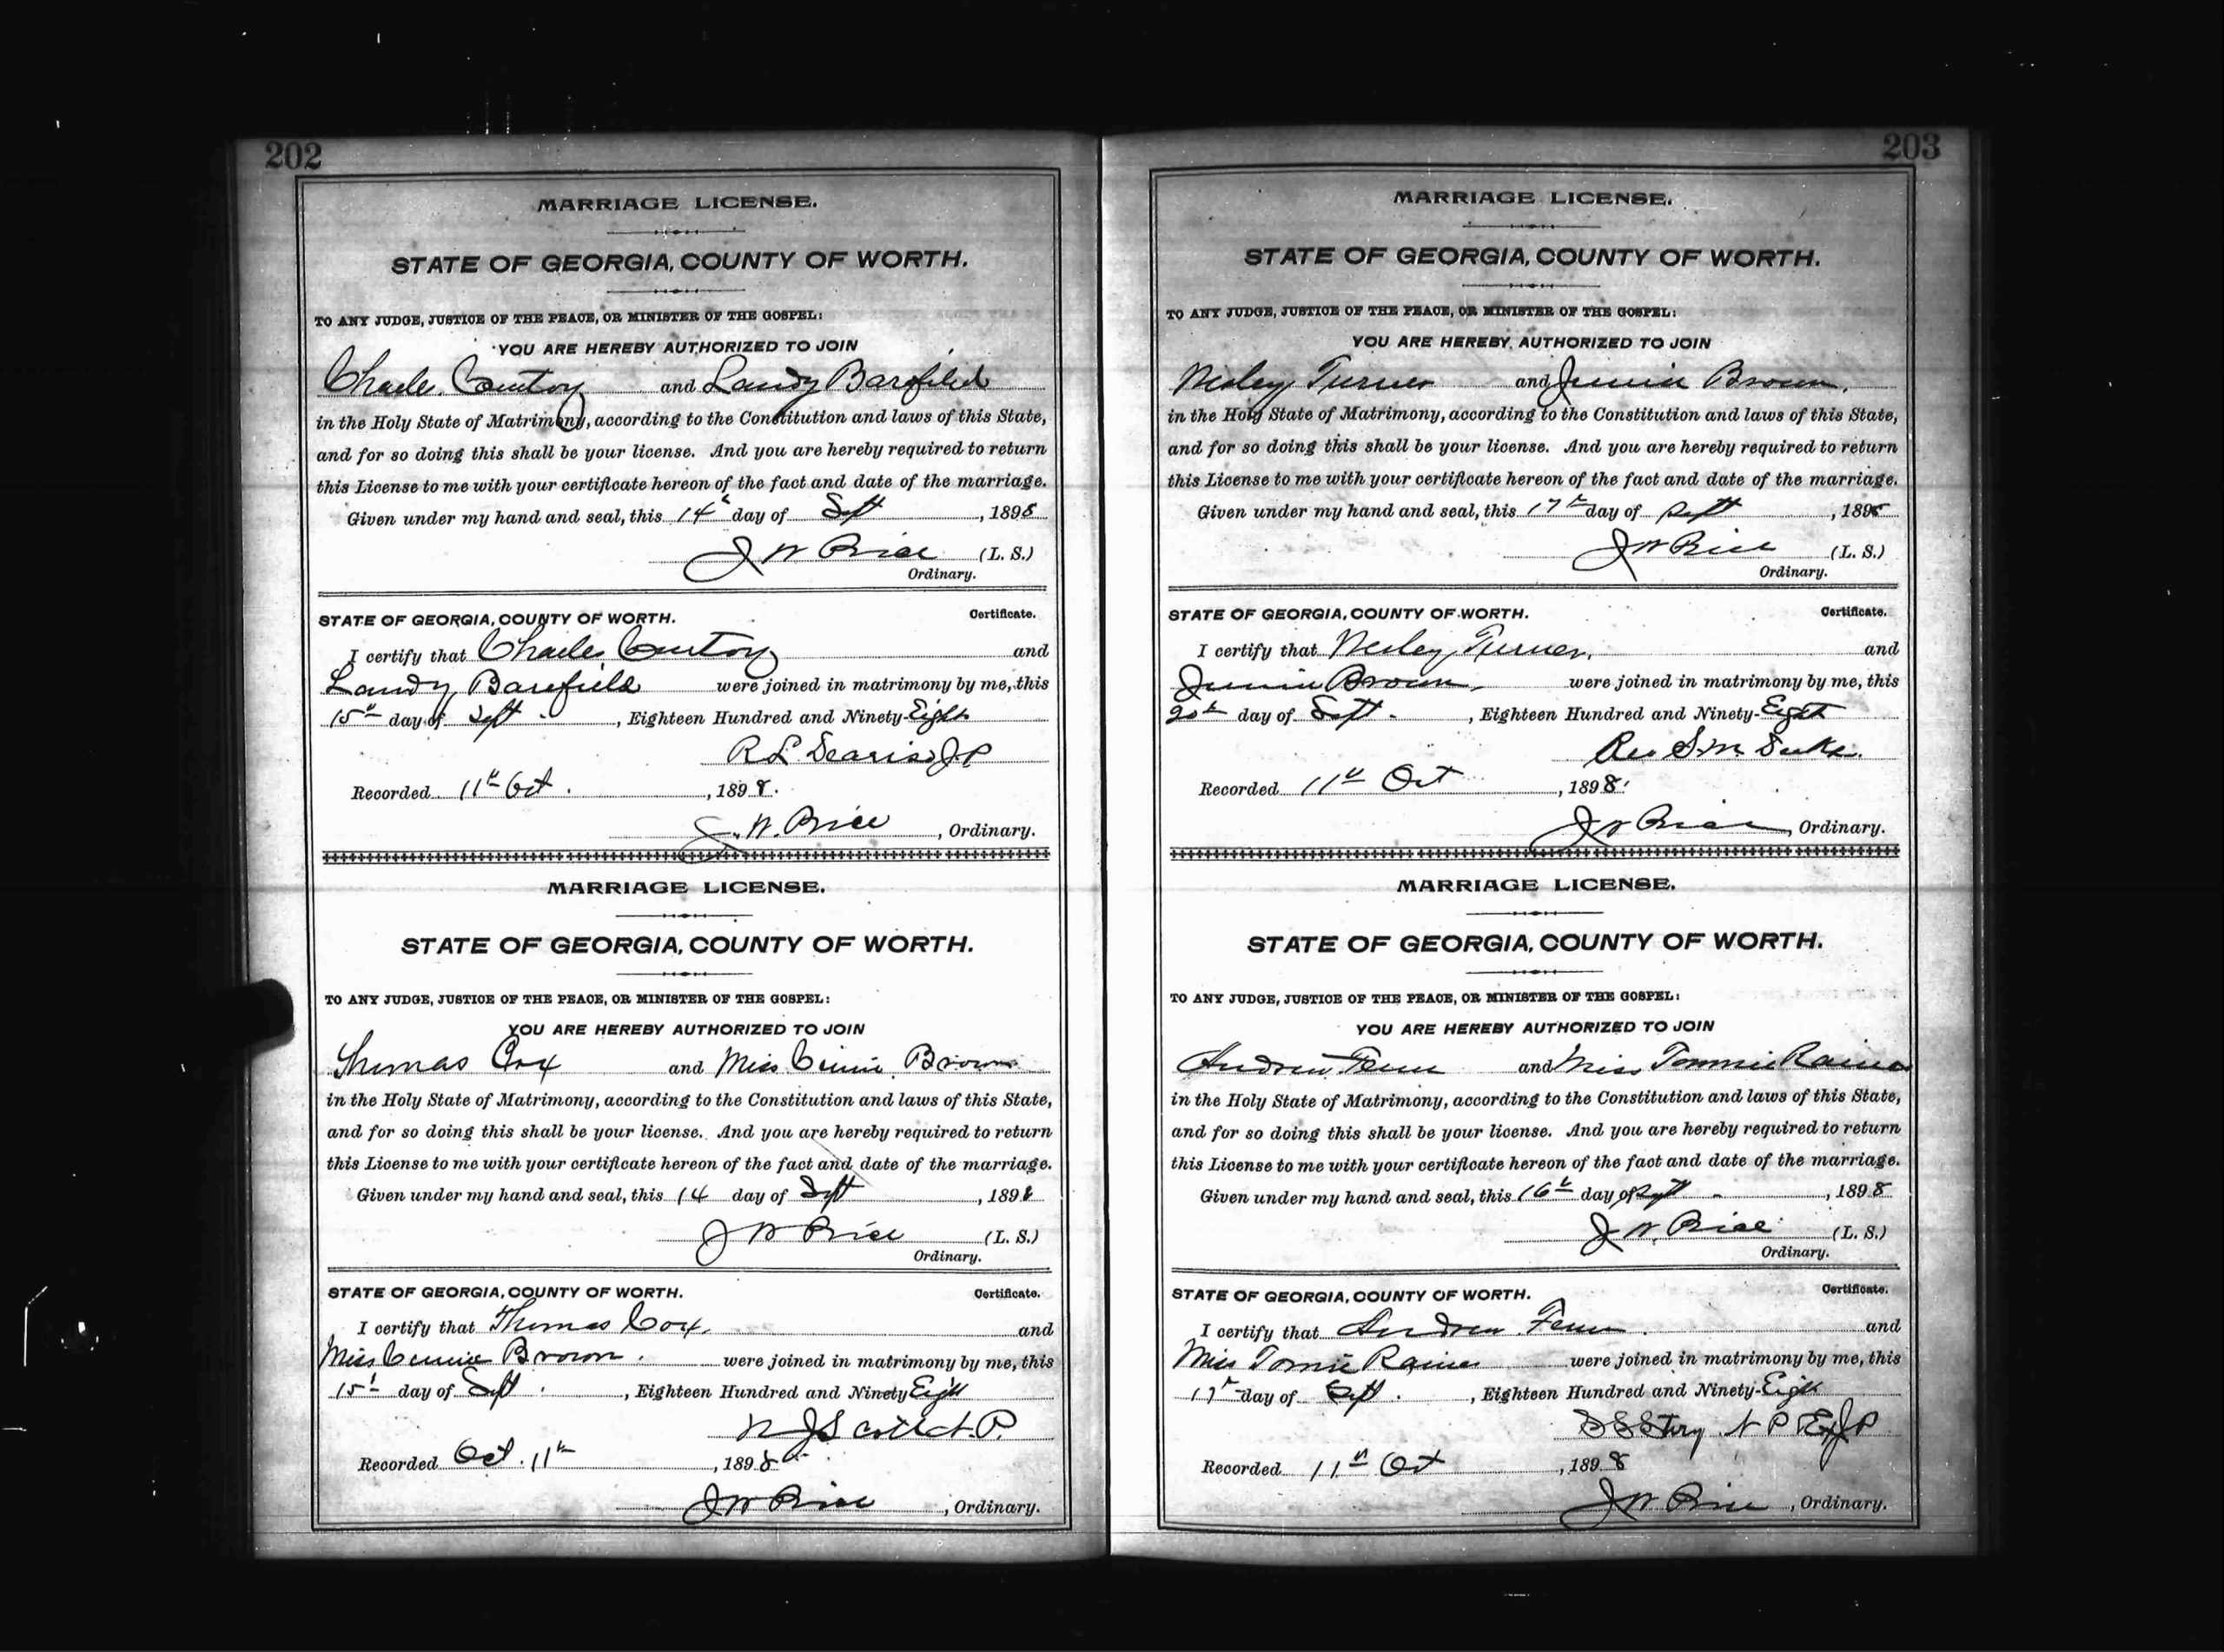 202
MARRIAGE LICENSE.
STATE OF GEORGIA, COUNTY OF WORTH.
TO ANY JUDGE, JUSTICE OF THE PEACE, OR MINISTER OF THE GOSPEL:
YOU ARE HEREBY AUTHORIZED TO JOIN
Charles and Landy Barefield
in the Holy State of Matrimony, according to the Constitution and laws of this State,
and for so doing this shall be your license. And you are hereby required to return
this License to me with your certificate hereon of the fact and date of the marriage.
Given under my hand and seal, this 14th day of Sept, 1898
J W Price (L. S.)
Ordinary.
STATE OF GEORGIA, COUNTY OF WORTH. Certificate.
I certify that Charles and
Landy Barefield were joined in matrimony by me, this
15th day of Sept., Eighteen Hundred and Ninety-Eight
R L JP
Recorded 11th Oct., 1898.
J. W. Price, Ordinary.
MARRIAGE LICENSE.
STATE OF GEORGIA, COUNTY OF WORTH.
TO ANY JUDGE, JUSTICE OF THE PEACE, OR MINISTER OF THE GOSPEL:
YOU ARE HEREBY AUTHORIZED TO JOIN
Thomas Cox and Miss Brown
in the Holy State of Matrimony, according to the Constitution and laws of this State,
and for so doing this shall be your license. And you are hereby required to return
this License to me with your certificate hereon of the fact and date of the marriage.
Given under my hand and seal, this 14 day of Sept, 1898
J W Price (L. S.)
Ordinary.
STATE OF GEORGIA, COUNTY OF WORTH. Certificate.
I certify that Thomas Cox. and
Miss Brown. were joined in matrimony by me, this
15th day of Sept., Eighteen Hundred and Ninety Eight
Recorded Oct. 11th, 1898
J W Price, Ordinary.
203
MARRIAGE LICENSE.
STATE OF GEORGIA, COUNTY OF WORTH.
TO ANY JUDGE, JUSTICE OF THE PEACE, OR MINISTER OF THE GOSPEL:
YOU ARE HEREBY AUTHORIZED TO JOIN
Wesley Turner and Jennie Brown.
in the Holy State of Matrimony, according to the Constitution and laws of this State,
and for so doing this shall be your license. And you are hereby required to return
this License to me with your certificate hereon of the fact and date of the marriage.
Given under my hand and seal, this 17th day of Sept, 1898
J W Price (L. S.)
Ordinary.
STATE OF GEORGIA, COUNTY OF WORTH. Certificate.
I certify that Wesley Turner. and
Jennie Brown. were joined in matrimony by me, this
20th day of Sept., Eighteen Hundred and Ninety-Eight
Rev S.M.
Recorded 11th Oct, 1898.
J W Price, Ordinary.
MARRIAGE LICENSE.
STATE OF GEORGIA, COUNTY OF WORTH.
TO ANY JUDGE, JUSTICE OF THE PEACE, OR MINISTER OF THE GOSPEL:
YOU ARE HEREBY AUTHORIZED TO JOIN
Andrew Fenn and Miss Tommie Raines
in the Holy State of Matrimony, according to the Constitution and laws of this State,
and for so doing this shall be your license. And you are hereby required to return
this License to me with your certificate hereon of the fact and date of the marriage.
Given under my hand and seal, this 16th day of Sept, 1898
J W. Price (L. S.)
Ordinary.
STATE OF GEORGIA, COUNTY OF WORTH. Certificate.
I certify that Andrew Fenn. and
Miss Tomie Raines were joined in matrimony by me, this
17th day of Sept., Eighteen Hundred and Ninety-Eight
S S Story N P Ex J P
Recorded 11th Oct, 1898
J W Price, Ordinary.